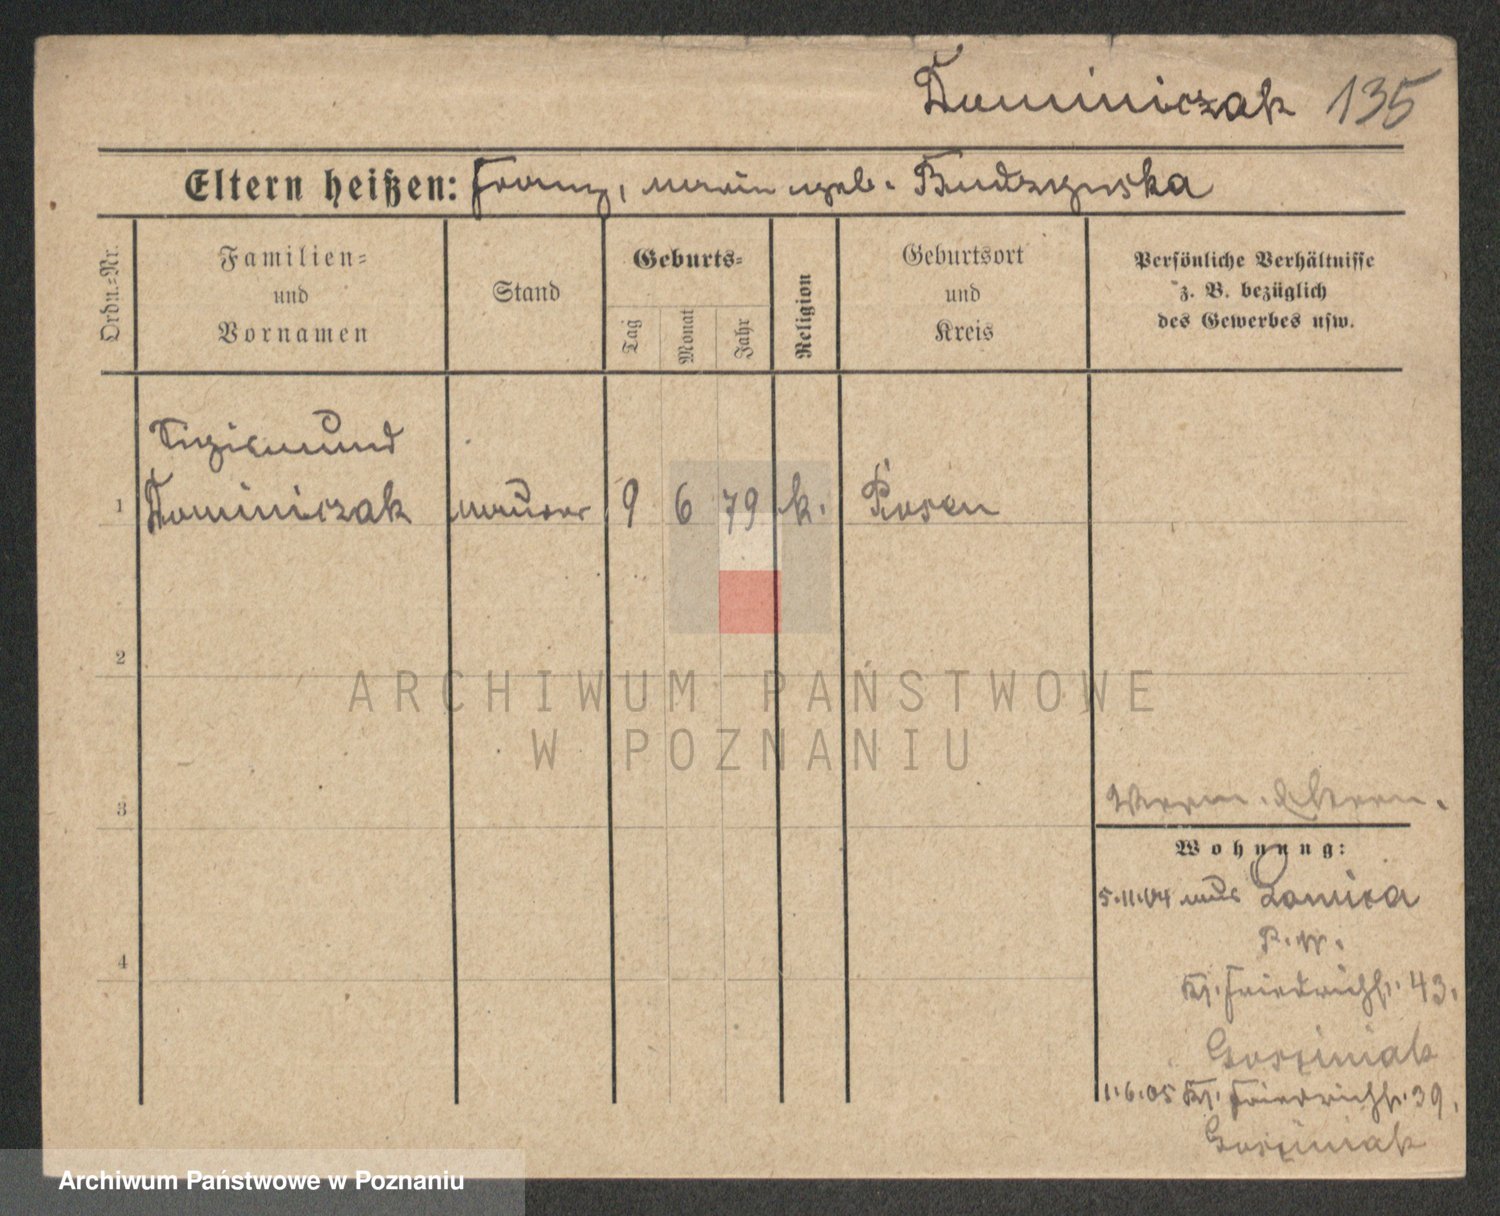 Dominiczak 135
Eltern heißen: Franz, Marie geb. Budzynska
Ordn.-Nr.
Familien-
und
Vornamen
Stand
Geburts-
Tag
Monat
Jahr
Religion
Geburtsort
und
Kreis
Persönliche Verhältnisse
z. B. bezüglich
des Gewerbes usw.
Sigismund
1 Dominiczak Maurer 9 6 79 k. Posen
2
3
4
Wohnung:
5.11.04 aus Lawica
P. W.
Kl. Friedrichstr. 43.
Gosziniak
1.6.05 Kl. Friedrichstr. 39.
Gosziniak
ARCHIWUM PAŃSTWOWE
W POZNANIU
Archiwum Państwowe w Poznaniu